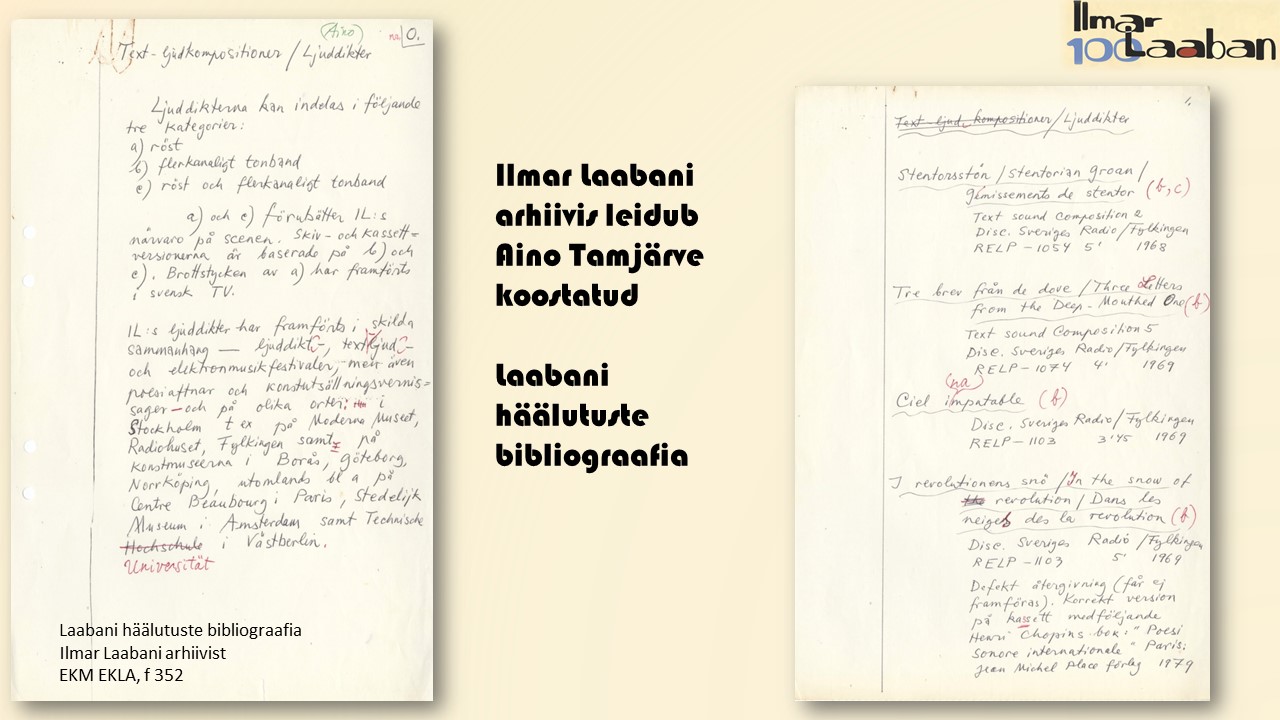 (Aino)
nr 0.
Text-ljudkompositioner / Ljuddikter
Ljuddikterna kan indelas i följande
tre kategorier:
a) röst
b) flerkanaligt tonband
c) röst och flerkanaligt tonband
a) och c) förutsätter IL:s
närvaro på scenen. Skiv- och kassett=
versionerna är baserade på b) och
c). Brottstycken av a) har framförts
i svensk TV.
IL:s ljuddikter har framförts i skilda
sammanhang — ljuddikt-, textljud-
och elektronmusikfestivaler, men även
poesiaftnar och konstutställningsvernis=
sager — och på olika orter: i
Stockholm t ex på Moderna Museet,
Radiohuset, Fylkingen samt på
konstmuseerna i Borås, Göteborg,
Norrköping, utomlands bl a på
Centre Beaubourg i Paris, Stedelijk
Museum i Amsterdam samt Technische
Hochschule i Västberlin.
Universität
Laabani häälutuste bibliograafia
Ilmar Laabani arhiivist
EKM EKLA, f 352
Ilmar Laabani
arhiivis leidub
Aino Tamjärve
koostatud
Laabani
häälutuste
bibliograafia
Ilmar
100 Laaban
1.
Text-ljud kompositioner / Ljuddikter
Stentorsstön / Stentorian groan /
Gémissements de stentor (b, c)
Text sound Composition 2
Disc. Sveriges Radio / Fylkingen
RELP-1054 5' 1968
Tre brev från de dove / Three Letters
from the Deep-Mouthed One (b)
Text sound Composition 5
Disc. Sveriges Radio / Fylkingen
RELP-1074 4' 1969
(na)
Ciel imputable (b)
Disc. Sveriges Radio / Fylkingen
RELP-1103 3'45 1969
I revolutionens snö / In the snow of
the revolution / Dans les
neiges des la revolution (b)
Disc. Sveriges Radio / Fylkingen
RELP-1103 5' 1969
Defekt återgivning (får ej
framföras). Korrekt version
på kassett medföljande
Henri Chopins bok: "Poesi
Sonore internationale" Paris:
Jean Michel Place förlag 1979